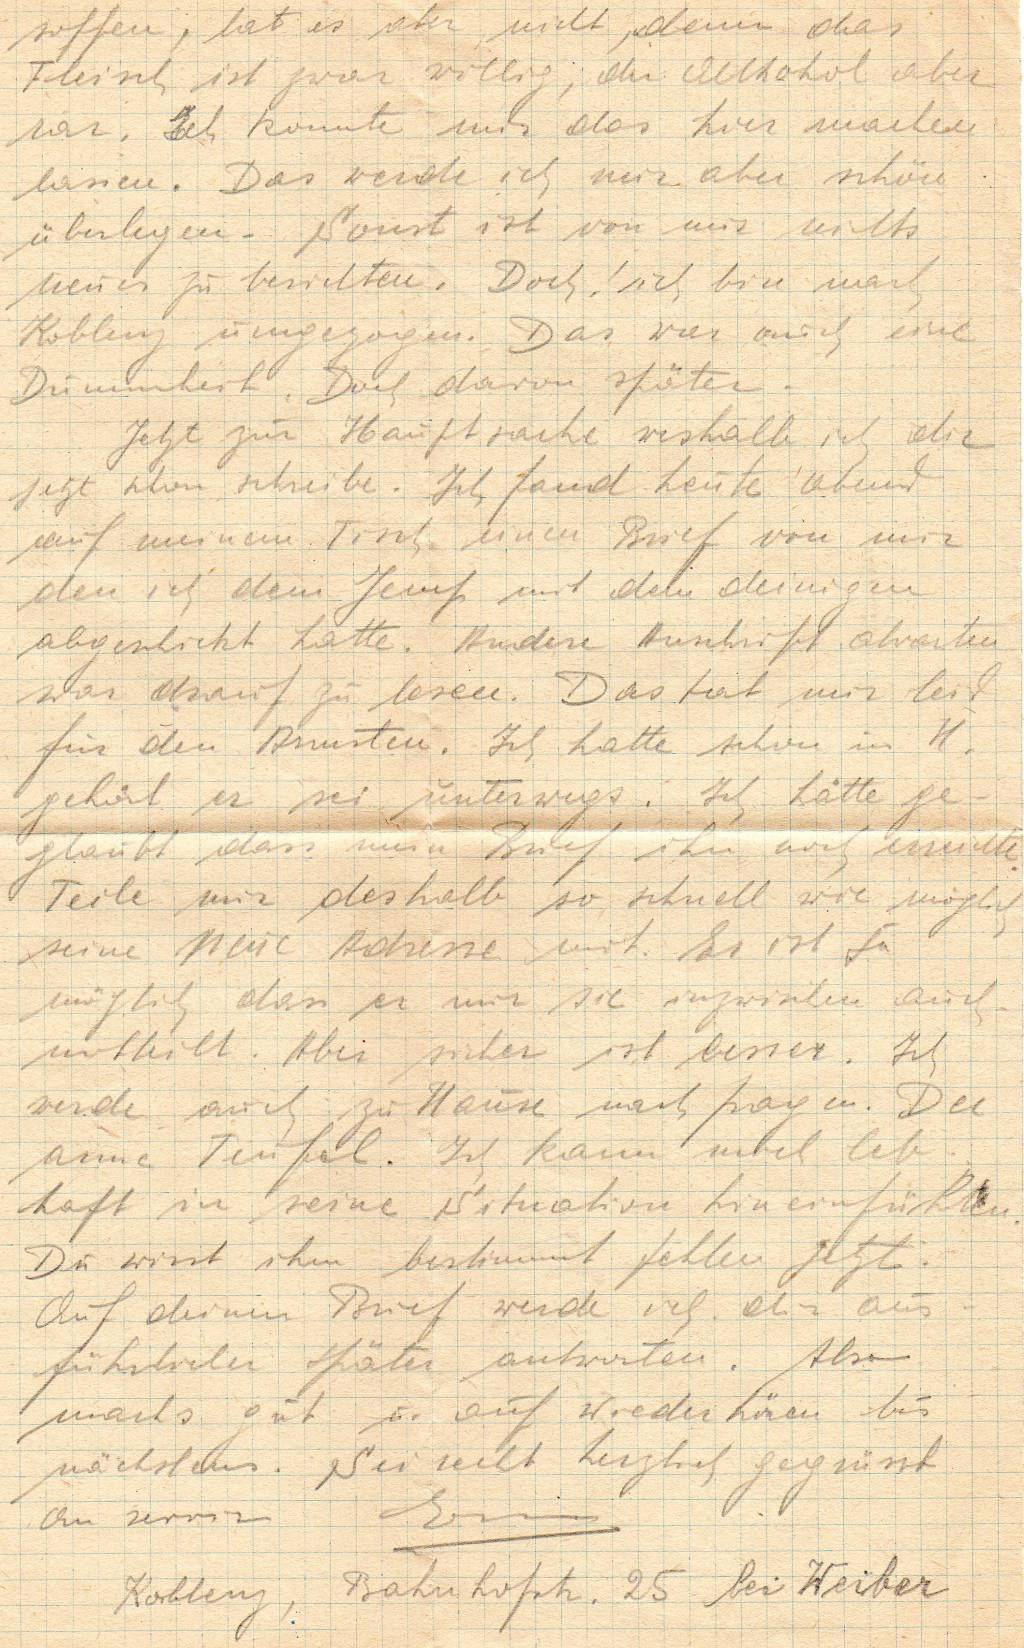 soffen, hat es aber nicht, denn das
Fleisch ist zwar willig, der Alkohol aber
rar. Ich konnte mir das hier machen
lassen. Das werde ich mir aber schön
überlegen. Sonst ist von mir nichts
neues zu berichten. Doch! ich bin nach
Koblenz umgezogen. Das war auch eine
Dummheit. Doch davon später.
Jetzt zur Hauptsache weshalb ich dir
jetzt schon schreibe. Ich fand heute abend
auf meinem Tisch einen Brief von mir
den ich dem Jemp mit dem deinigen
abgeschickt hatte. Andere Anschrift abwarten
war drauf zu lesen. Das tut mir leid
für den Ärmsten. Ich hatte schon in H.
gehört er sei unterwegs. Ich hätte ge-
glaubt dass mein Brief ihn noch erreichte.
Teile mir deshalb so schnell wie möglich
seine Neue Adresse mit. Es ist ja
möglich dass er mir sie inzwischen auch
mitteilt. Aber sicher ist besser. Ich
werde auch zu Hause nach fragen. Der
arme Teufel. Ich kann mich leb-
haft in seine Situation hineinfühlen.
Du wirst ihm bestimmt fehlen jetzt.
Auf deinen Brief werde ich dir aus-
führlicher später antworten. Also
machs gut u. auf wiederhören bis
nächstens. Sei recht herzlich gegrüsst
au revoir
Koblenz, Bahnhofstr. 25 bei Weiber